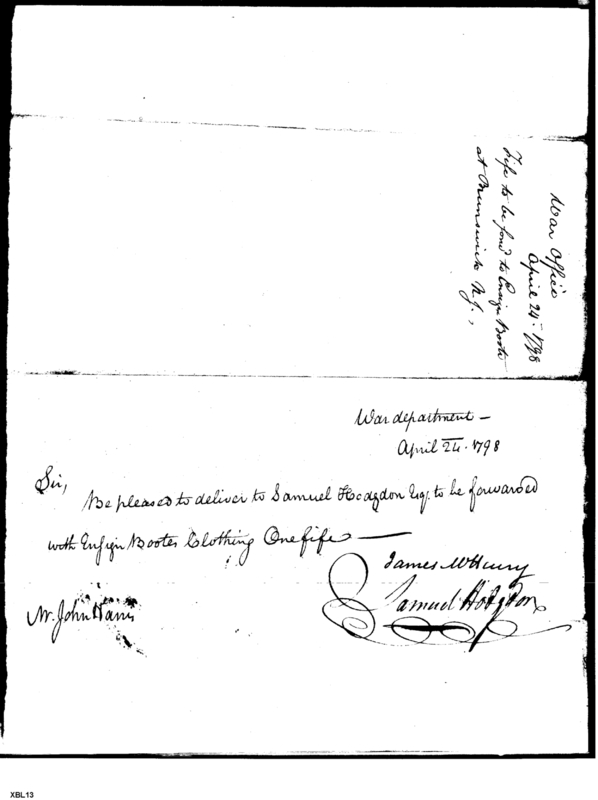 War Office
April 24. 1798
Fife to be forw'd to Ensign Boote
at Brunswick N.J.,
War department –
April 24. 1798
Sir,
Be pleased to deliver to Samuel Hodgdon Esqr. to be forwarded
with Ensign Bootes Clothing One fife —
James McHenry
Samuel Hodgdon
Mr. John Harris
XBL13